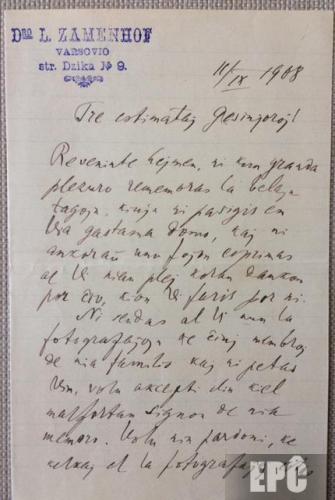 DRO L. ZAMENHOF
VARSOVIO
str. Dzika № 9.
11/IX 1908
Tre estimataj Gesinjoroj!
Reveninte hejmen, ni kun granda
plezuro rememoras la belajn
tagojn, kiujn ni pasigis en
Via gastama domo, kaj ni
ankoraŭ unu fojon esprimas
al Vi nian plej koran dankon
por ĉio, kion Vi faris por ni.
Ni sendas al Vi nun la
fotografaĵojn de ĉiuj membroj
de nia familio kaj ni petas
Vin, volu akcepti ilin kiel
malfortan signon de nia
memoro. Volu nin pardoni, ke
kelkaj el la fotografaĵoj
EPC